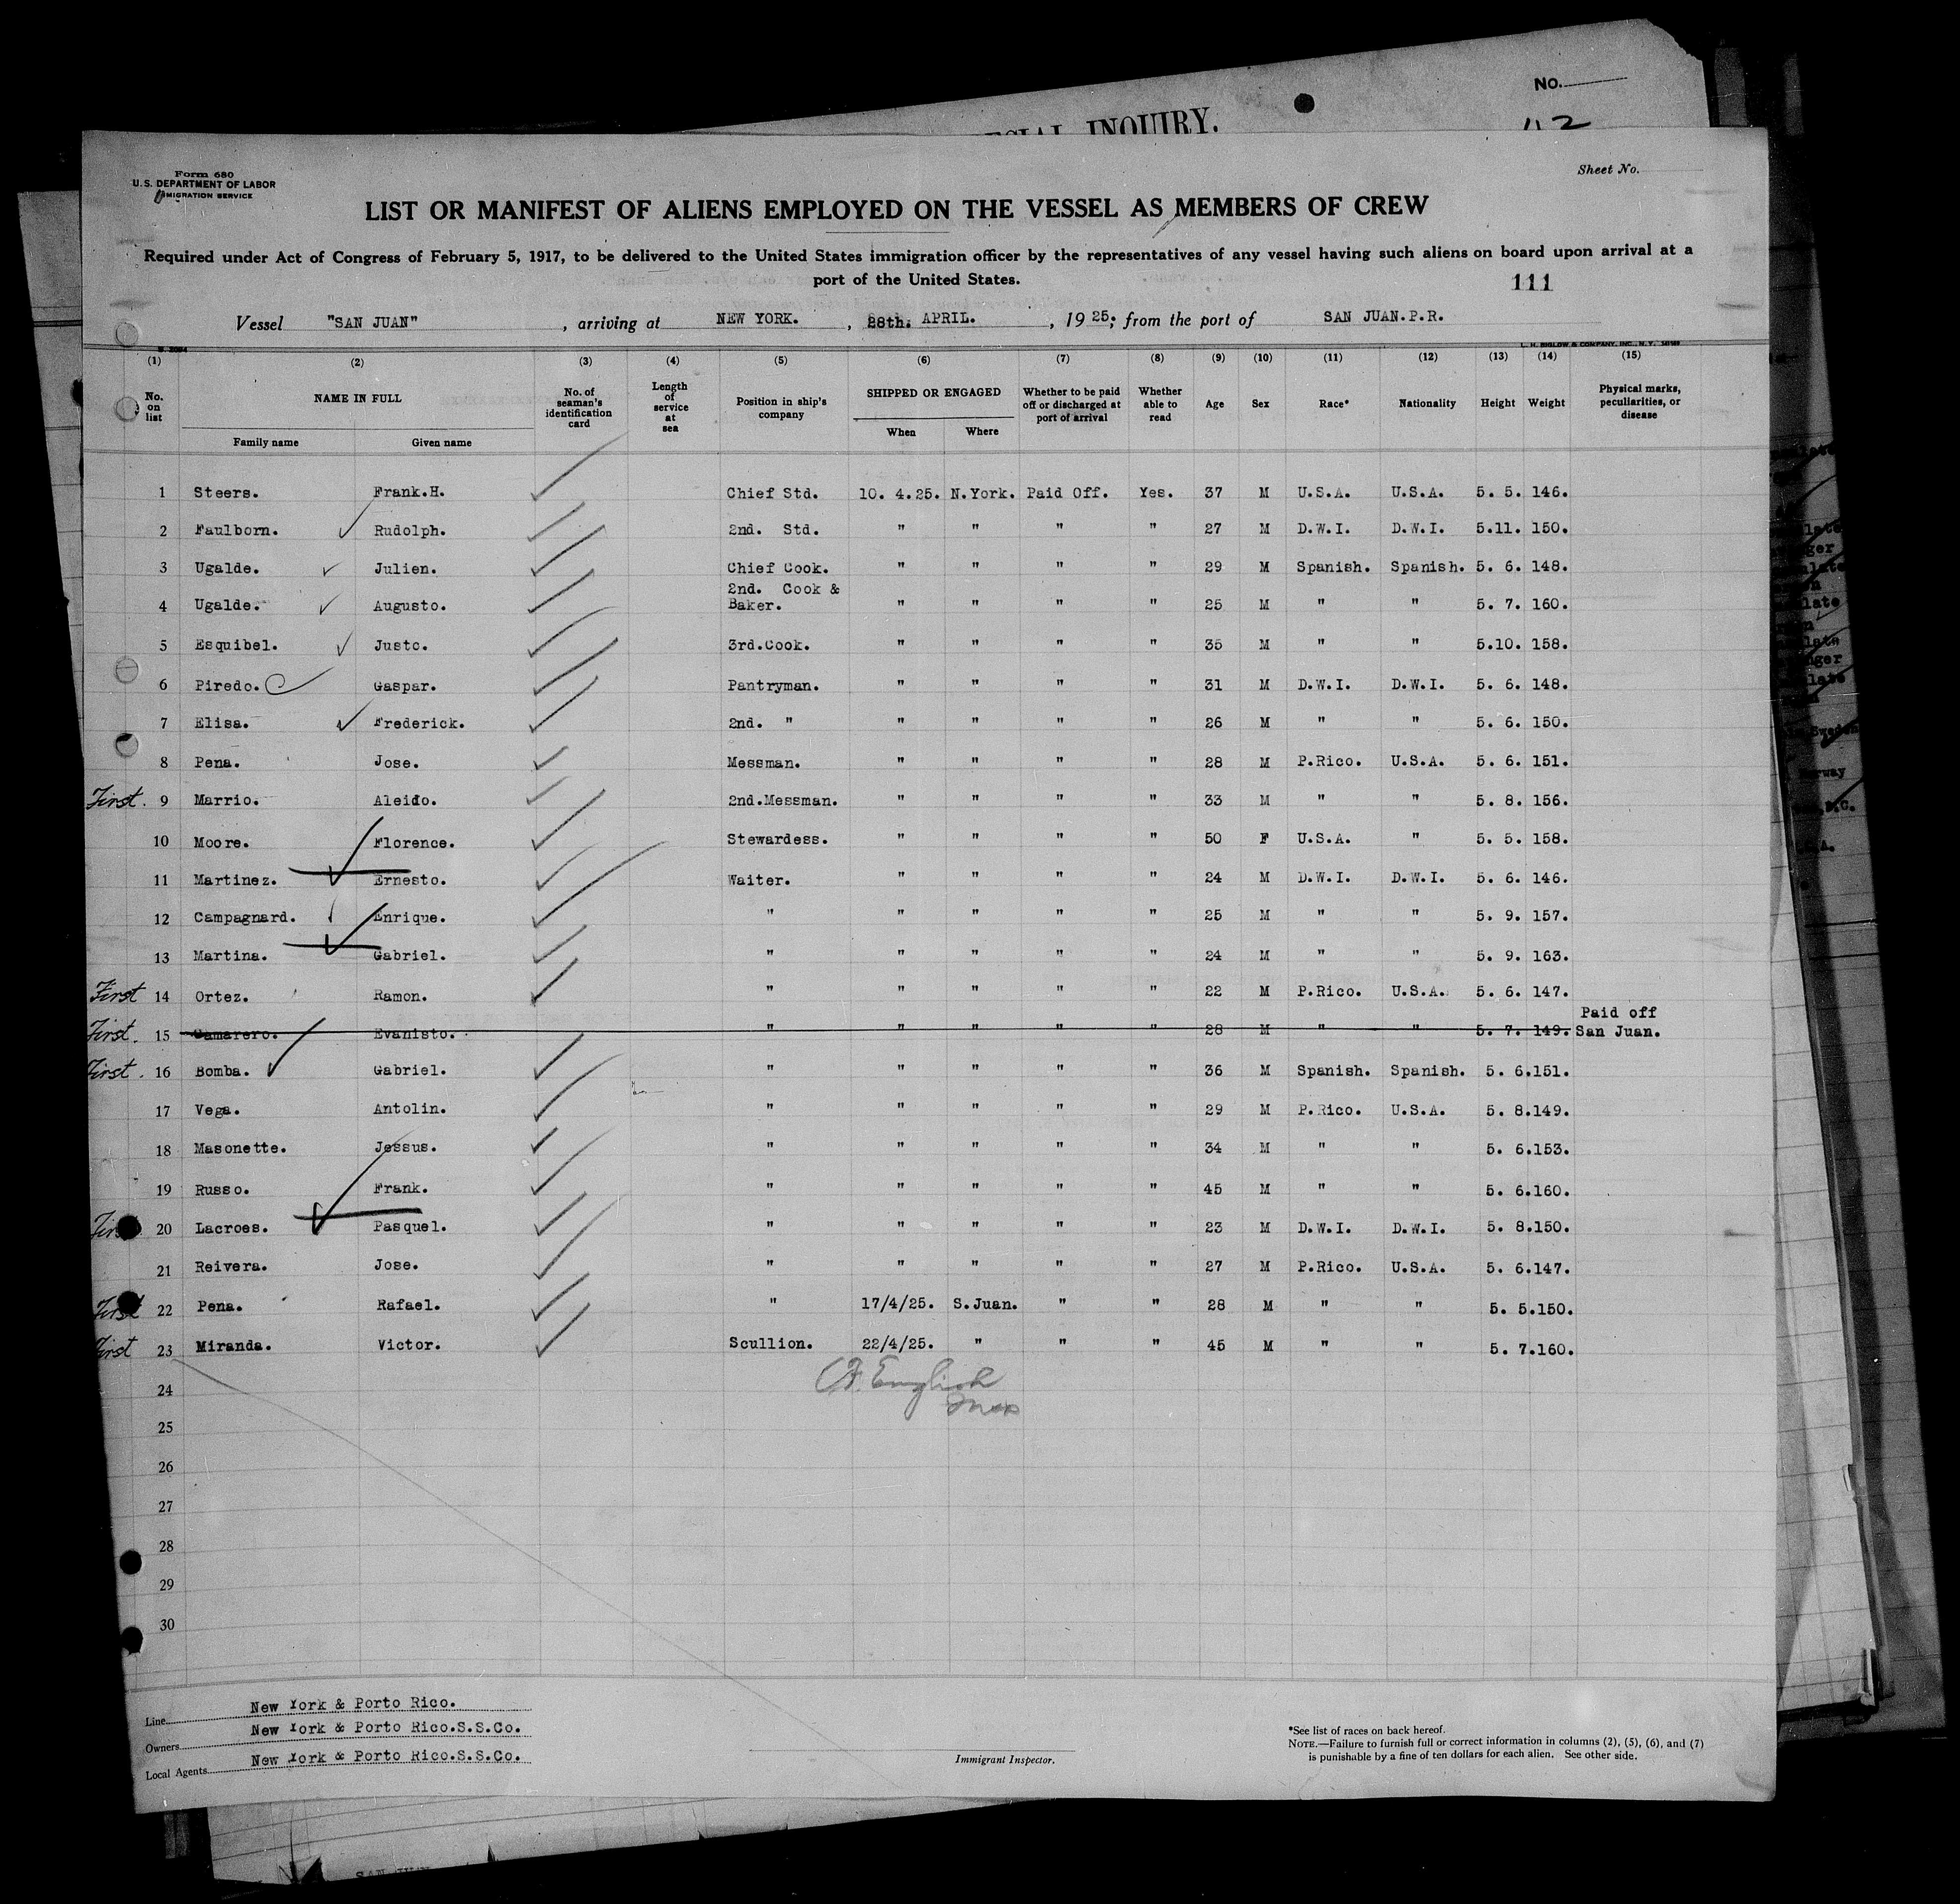 No.
INQUIRY.
Form 680
U. S. DEPARTMENT OF LABOR
IMMIGRATION SERVICE
Sheet No.
LIST OR MANIFEST OF ALIENS EMPLOYED ON THE VESSEL AS MEMBERS OF CREW
Required under Act of Congress of February 5, 1917, to be delivered to the United States immigration officer by the representatives of any vessel having such aliens on board upon arrival at a
port of the United States.
111
Vessel "SAN JUAN" , arriving at NEW YORK. , 28th. APRIL. , 1925; from the port of SAN JUAN.P.R.
L. H. BIGLOW & COMPANY, INC., N.Y.
(1) (2) (3) (4) (5) (6) (7) (8) (9) (10) (11) (12) (13) (14) (15)
No. on list NAME IN FULL No. of seaman's identification card Length of service at sea Position in ship's company SHIPPED OR ENGAGED Whether to be paid off or discharged at port of arrival Whether able to read Age Sex Race* Nationality Height Weight Physical marks, peculiarities, or disease
Family name Given name When Where
1 Steers. Frank.H. Chief Std. 10. 4.25. N.York. Paid Off. Yes. 37 M U.S.A. U.S.A. 5. 5. 146.
2 Faulborn. Rudolph. 2nd. Std. " " " " 27 M D.W.I. D.W.I. 5.11. 150.
3 Ugalde. Julien. Chief Cook. " " " " 29 M Spanish. Spanish. 5. 6. 148.
4 Ugalde. Augusto. 2nd. Cook & Baker. " " " " 25 M " " 5. 7. 160.
5 Esquibel. Justo. 3rd.Cook. " " " " 35 M " " 5.10. 158.
6 Piredo. Gaspar. Pantryman. " " " " 31 M D.W.I. D.W.I. 5. 6. 148.
7 Elisa. Frederick. 2nd. " " " " " 26 M " " 5. 6. 150.
8 Pena. Jose. Messman. " " " " 28 M P.Rico. U.S.A. 5. 6. 151.
First. 9 Marrio. Aleido. 2nd.Messman. " " " " 33 M " " 5. 8. 156.
10 Moore. Florence. Stewardess. " " " " 50 F U.S.A. " 5. 5. 158.
11 Martinez. Ernesto. Waiter. " " " " 24 M D.W.I. D.W.I. 5. 6. 146.
12 Campagnard. Enrique. " " " " " 25 M " " 5. 9. 157.
13 Martina. Gabriel. " " " " " 24 M " " 5. 9. 163.
First 14 Ortez. Ramon. " " " " " 22 M P.Rico. U.S.A. 5. 6. 147.
First. 15 Camarero. Evanisto. " " " " " 28 M " " 5. 7. 149. Paid off San Juan.
First. 16 Bomba. Gabriel. " " " " " 36 M Spanish. Spanish. 5. 6.151.
17 Vega. Antolin. " " " " " 29 M P.Rico. U.S.A. 5. 8.149.
18 Masonette. Jessus. " " " " " 34 M " " 5. 6.153.
19 Russo. Frank. " " " " " 45 M " " 5. 6.160.
First 20 Lacroes. Pasquel. " " " " " 23 M D.W.I. D.W.I. 5. 8.150.
21 Reivera. Jose. " " " " " 27 M P.Rico. U.S.A. 5. 6.147.
First 22 Pena. Rafael. " 17/4/25. S.Juan. " " 28 M " " 5. 5.150.
First 23 Miranda. Victor. Scullion. 22/4/25. " " " 45 M " " 5. 7.160.
24
English
25
26
27
28
29
30
Line New York & Porto Rico.
Owners New York & Porto Rico.S.S.Co.
Local Agents New York & Porto Rico.S.S.Co.
Immigrant Inspector.
*See list of races on back hereof.
NOTE.—Failure to furnish full or correct information in columns (2), (5), (6), and (7)
is punishable by a fine of ten dollars for each alien. See other side.